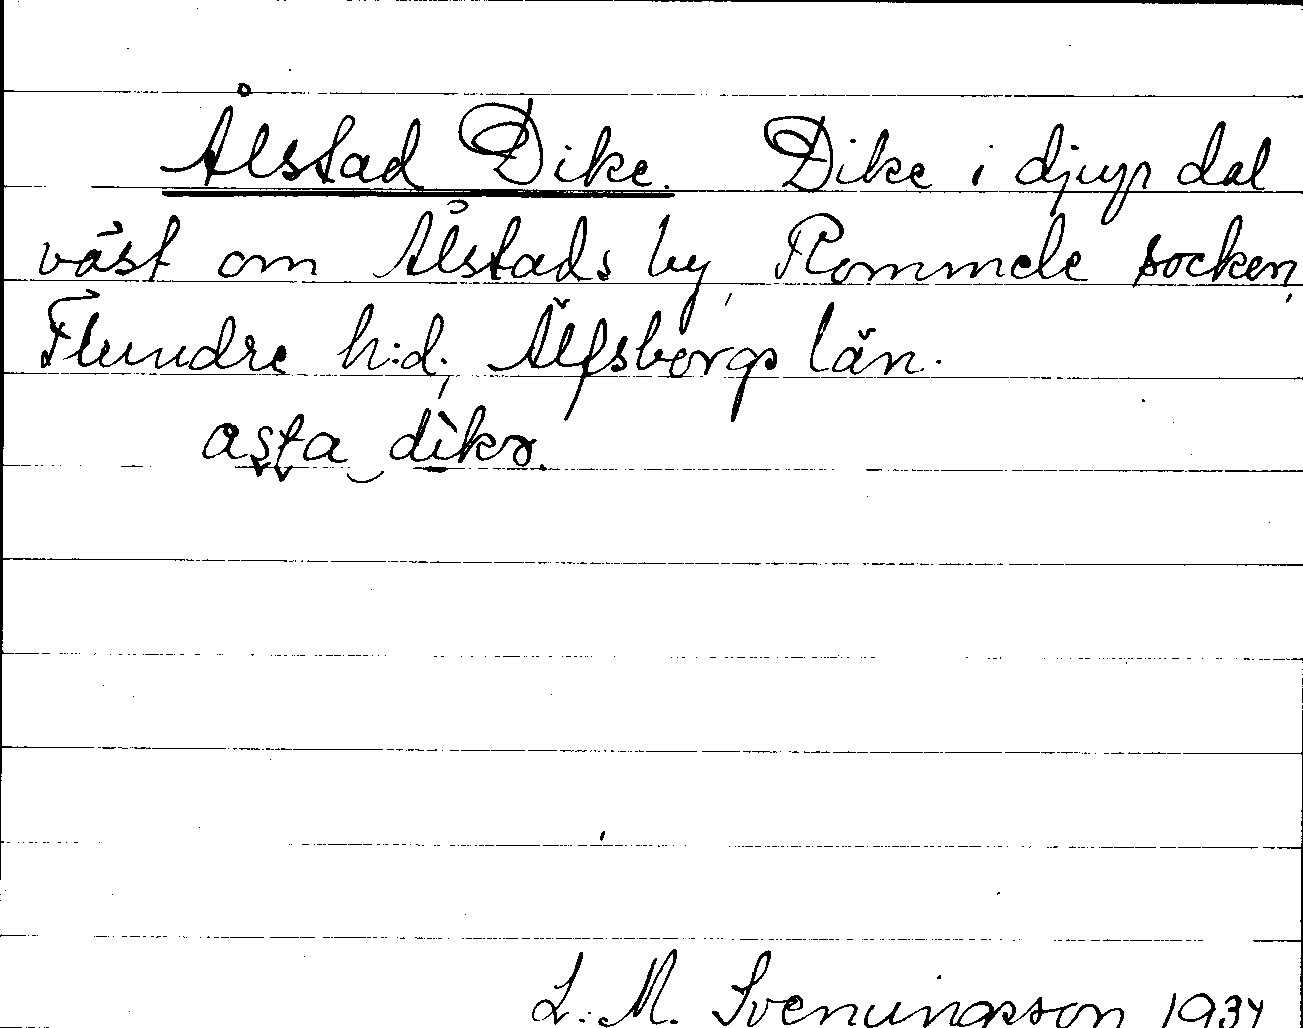 Ålstad Dike. Dike i djup dal
väst om Ålstads by, Rommele socken,
Flundre h:d, Älfsborgs län.
aşta dìkɘ.
L. M. Svenungsson 1934